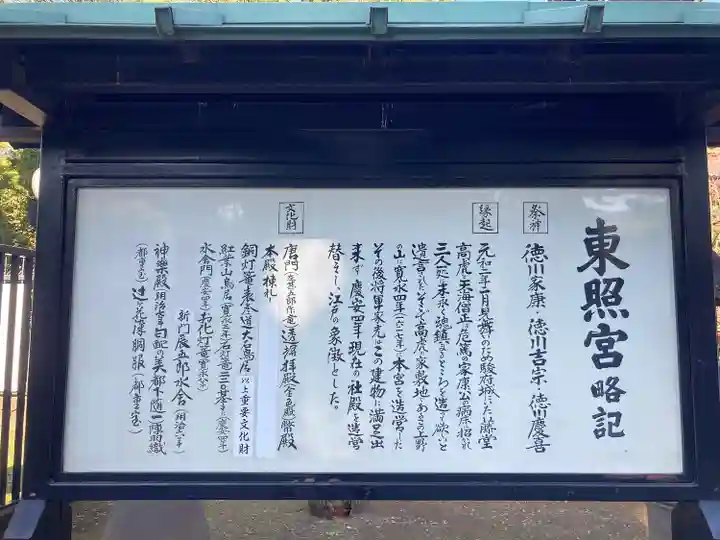 東照宮略記
祭神
徳川家康・徳川吉宗・徳川慶喜
縁起
元和二年二月見舞のため駿府城にいた藤堂
高虎と天海僧正は危篤の家康公の病床に招かれ
三人一処に末永く魂鎮まるところを造って欲しいと
遺言された。そこで高虎の家敷地であるこの上野
の山に寛永四年(一六二七年)本宮を造営した
その後将軍家光はこの建物に満足出
来ず慶安四年現在の社殿を造営
替えし、江戸の象徴とした。
文化財
唐門(左甚五郎作竜)透塀 拝殿(金色殿)幣殿
本殿 棟札
銅灯篭 表参道大石鳥居 以上重要文化財
紅葉山鳥居(寛永三年)石灯篭二二〇基(慶安四年)
水舎門(慶安四年)お化灯篭(寛永八年)
新門辰五郎水舎(明治七年)
神楽殿(明治七年)
(都重宝)